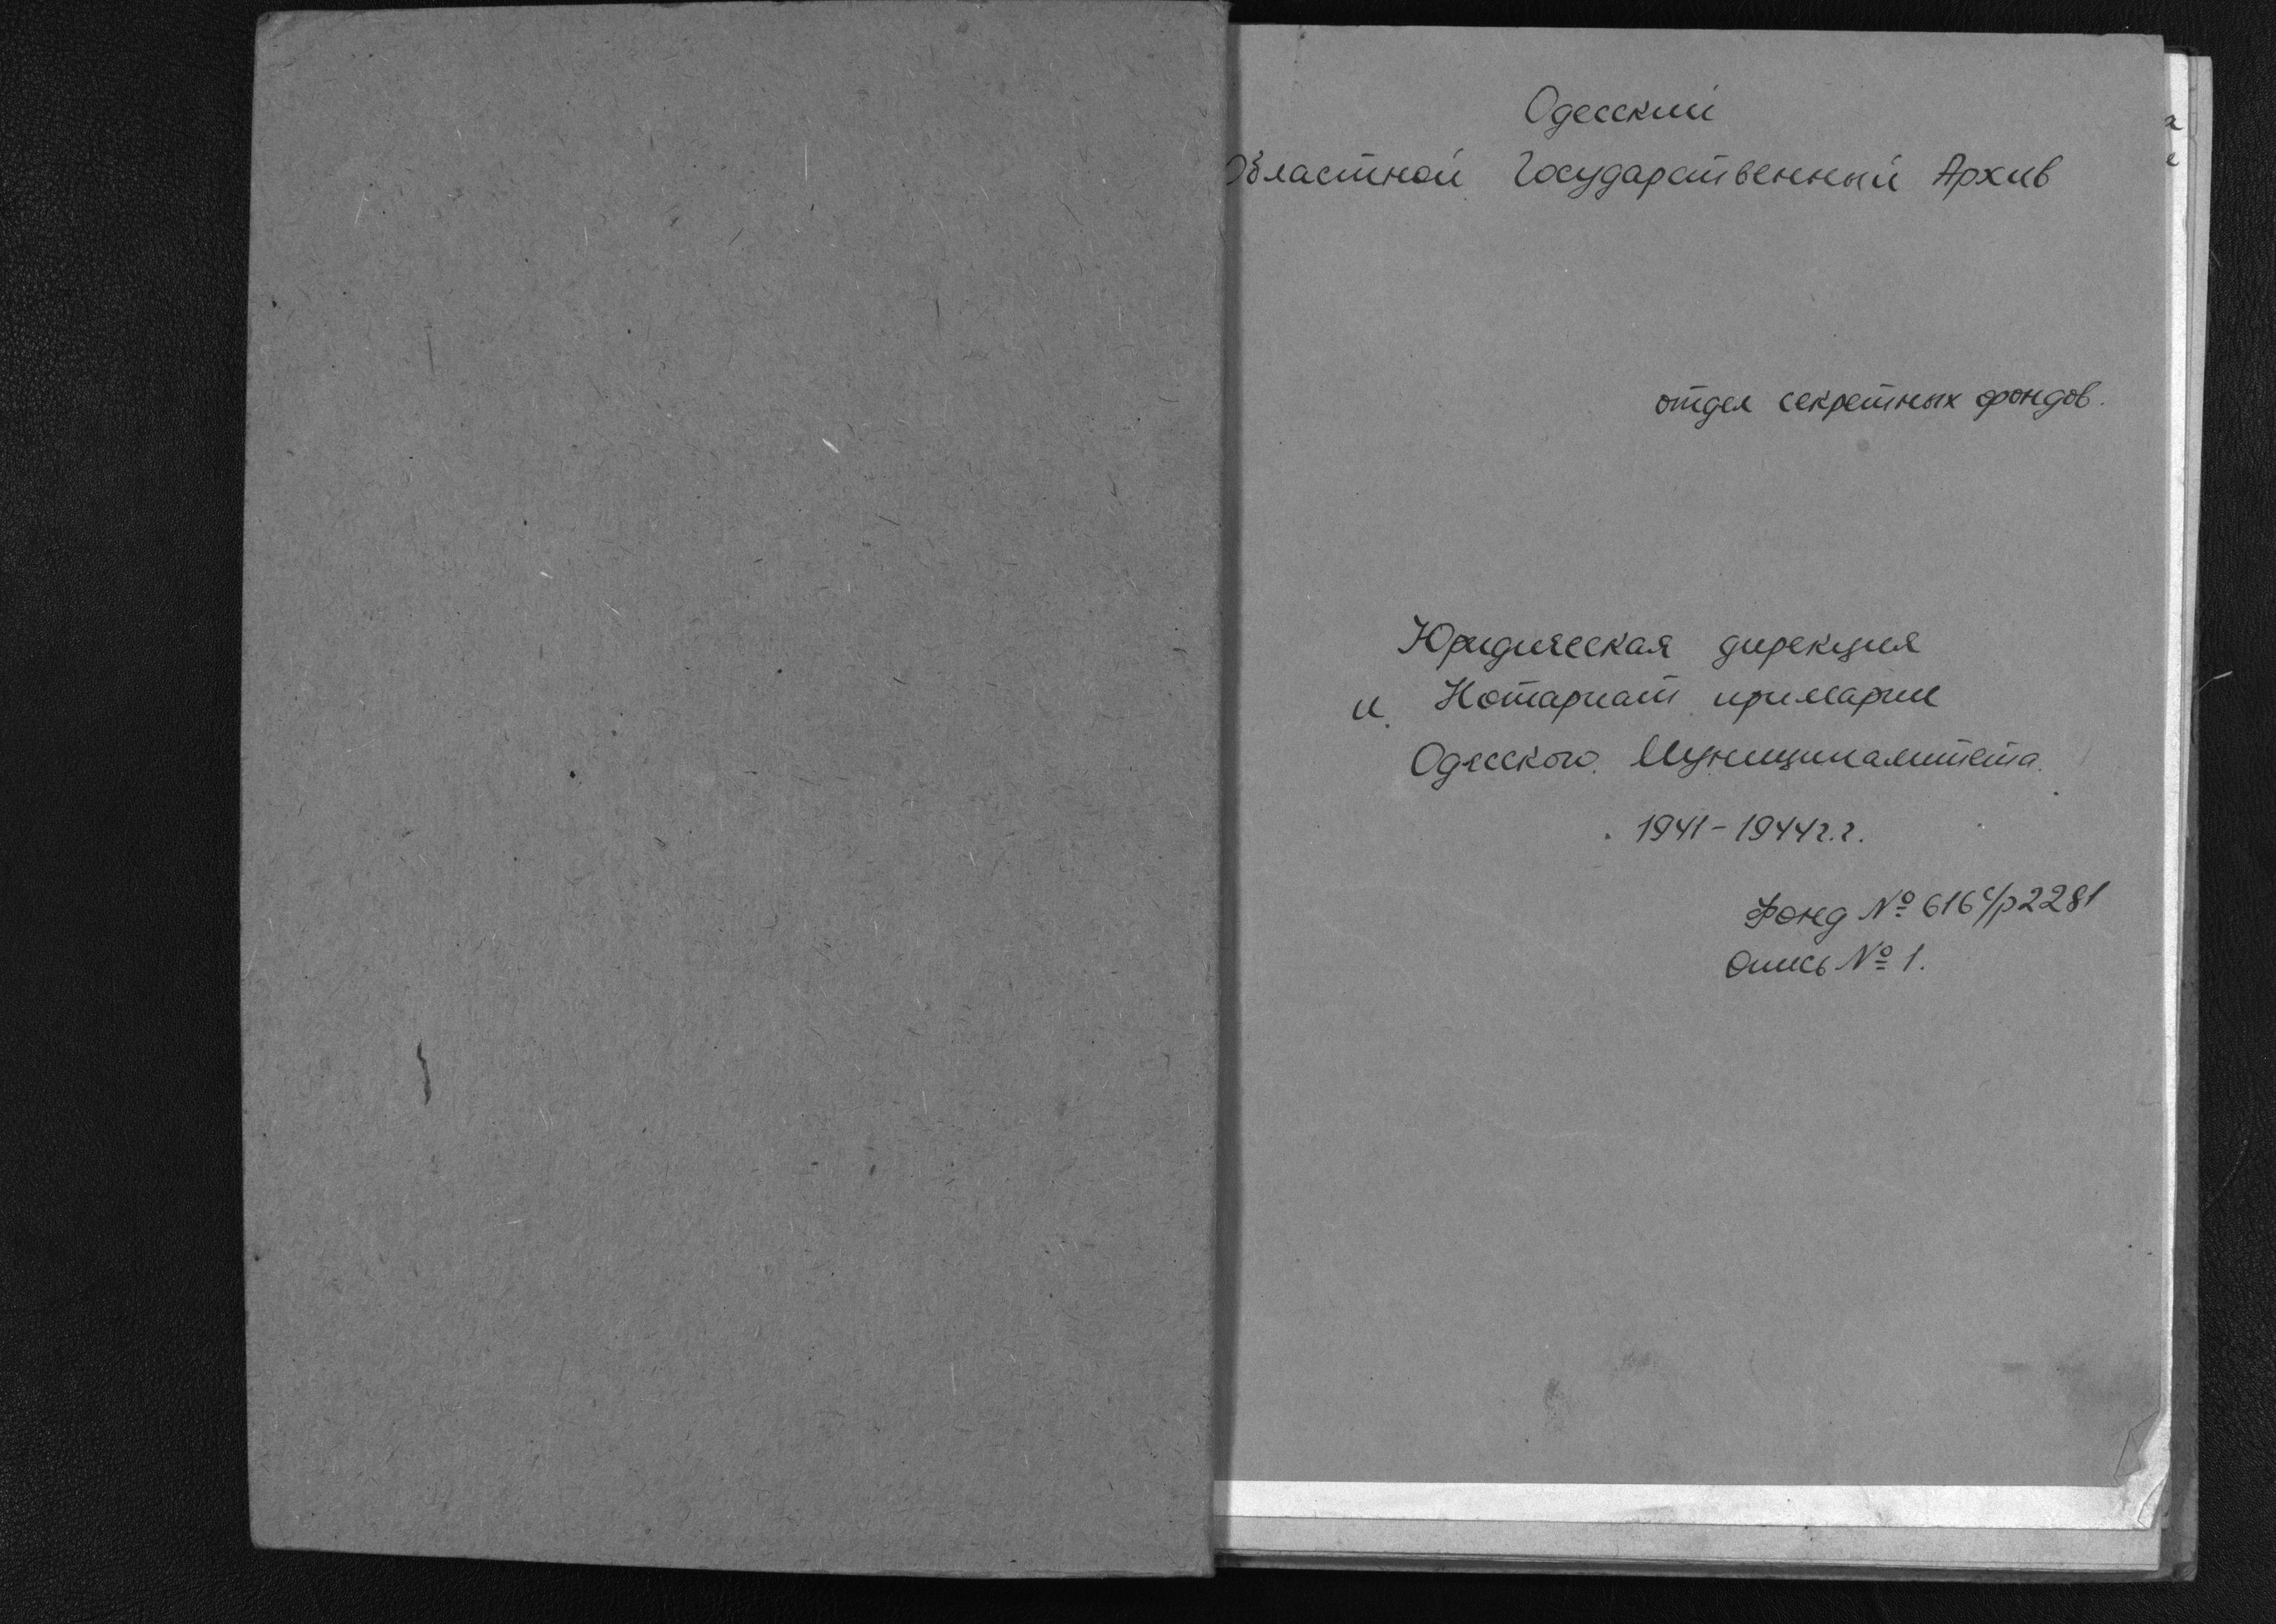 Одесский
Областной Государственный Архив
отдел секретных фондов.
Юридическая дирекция
и Нотариат примарии
Одесского Муниципалитета.
1941-1944г.г.
Фонд № 616 с/р2281
Опись № 1.